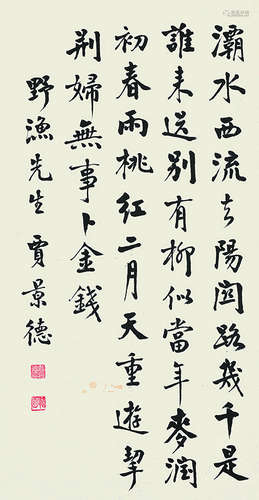 灞水西流去陽関路幾千是
誰来送别有柳似當年麥潤
初春雨桃紅二月天重遊挈
荆婦無事卜金錢
野漁先生 賈景德